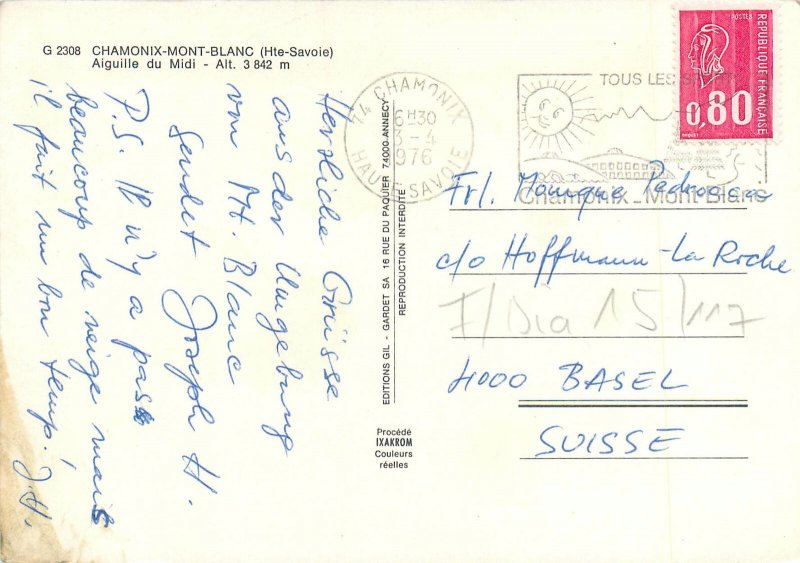 G 2308 CHAMONIX-MONT-BLANC (Hte-Savoie)
Aiguille du Midi - Alt. 3 842 m
Herzliche Grüsse
aus der Umgebung
vom Mt. Blanc
Sendet Joseph H.
P.S. Il n'y a pas
beaucoup de neige mais
il fait un bon temp! J.H.
EDITIONS GIL - GARDET SA 16 RUE DU PAQUIER 74000-ANNECY
REPRODUCTION INTERDITE
Procédé
IXAKROM
Couleurs
réelles
74 CHAMONIX
16H30
3-4
1976
HAUTE-SAVOIE
TOUS LES
Chamonix_Mont-Blanc
POSTES
REPUBLIQUE FRANÇAISE
0,80
Frl. Monique
c/o Hoffmann-La Roche
I/Dia 15/117
4000 BASEL
SUISSE